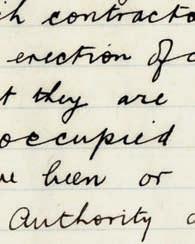 ch contracto
erection of c
t they are
occupied
ve been or
Authority a